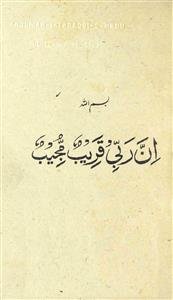 بسم الله
اِنَّ رَبِّىْ قَرِيْبٌ مُّجِيْبٌ